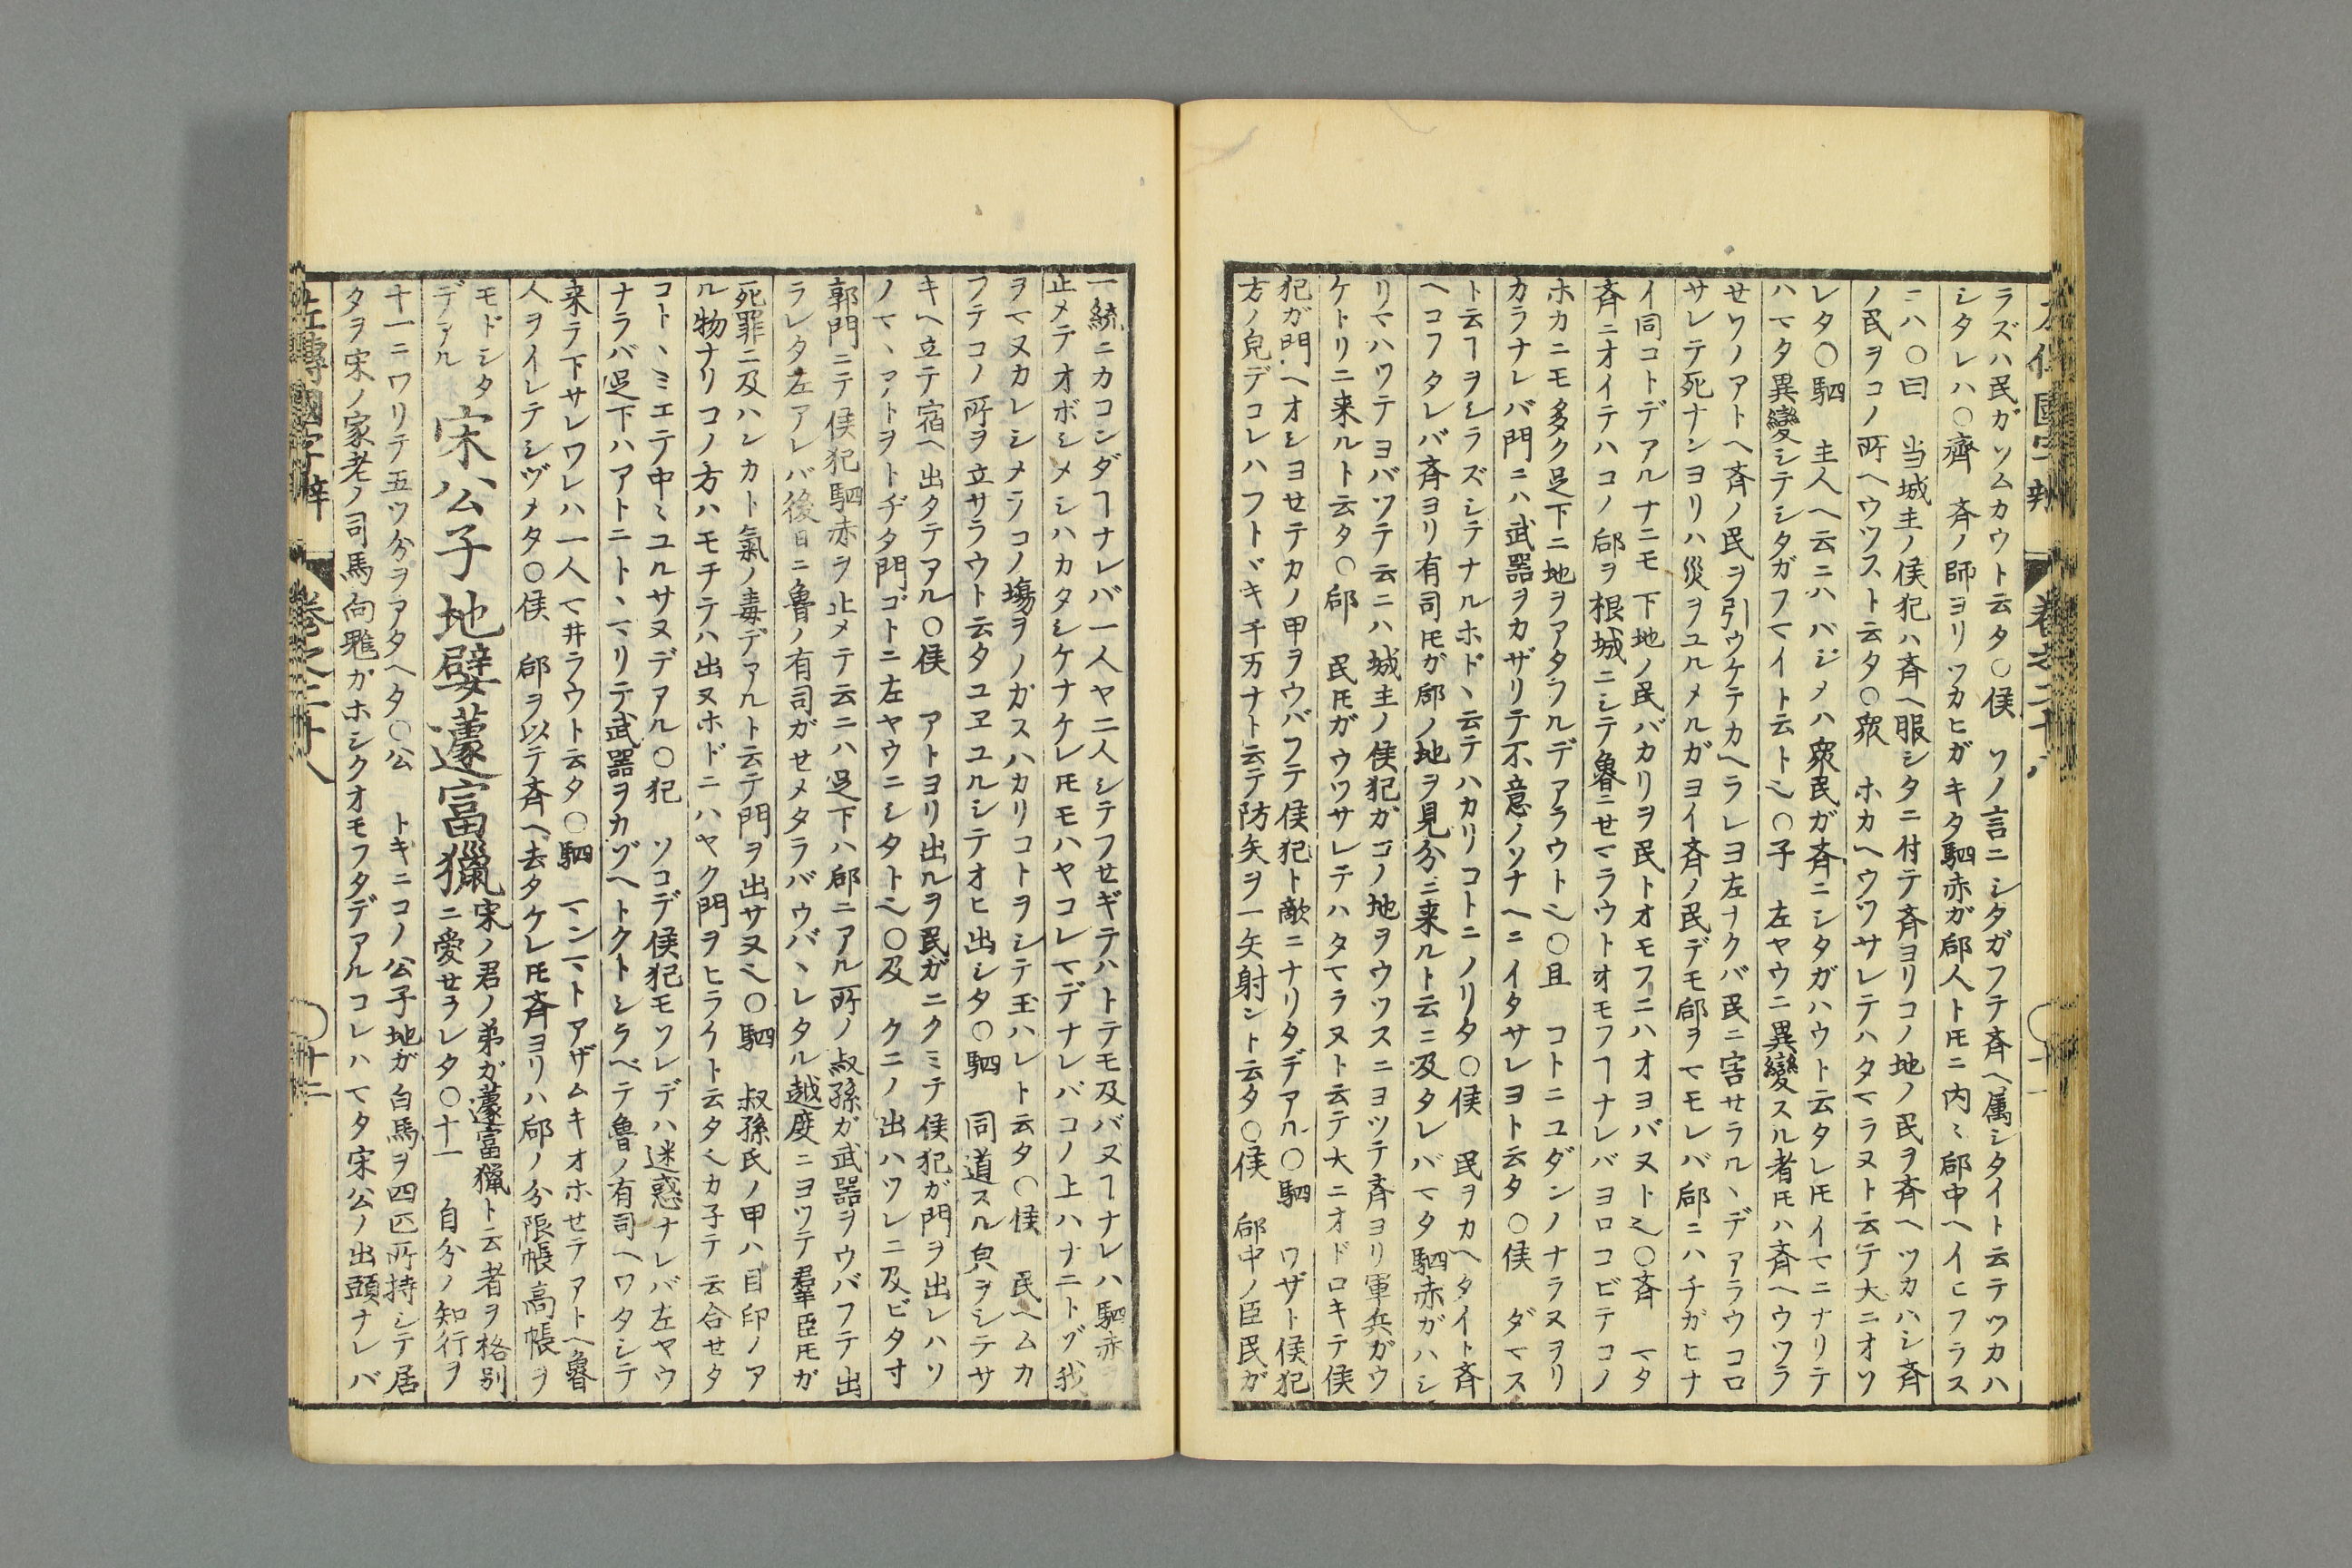 ラズハ民ガソムカウト云タ〇侯　ソノ言ニシタガフテ斉ヘ属シタイト云テツカハ
シタレハ〇齊　斉ノ師ヨリツカヒガキタ駟赤ガ郈人トモニ内〻郈中ヘイヒフラス
ニハ〇曰　当城主ノ侯犯ハ斉ヘ服シタニ付テ斉ヨリコノ地ノ民ヲ斉ヘツカハシ斉
ノ民ヲコノ所ヘウツスト云タ〇衆　ホカヘウツサレテハタマラヌト云テ大ニオソ
レタ〇駟　主人ヘ云ニハハジメハ衆民ガ斉ニシタガハウト云タレ𪜈イマニナリテ
ハマタ異變シテシタガフマイト云トヘ〇子　左ヤウニ異變スル者𪜈ハ斉ヘウツラ
セソノアトヘ斉ノ民ヲ引ウケテカヘラレヨ左ナクバ民ニ害セラルヽデアラウコロ
サレテ死ナンヨリハ災ヲユルメルガヨイ斉ノ民デモ郈ヲマモレバ郈ニハチガヒナ
イ同コトデアルナニモ下地ノ民バカリヲ民トオモフニハオヨバヌトヘ〇斉　マタ
斉ニオイテハコノ郈ヲ根城ニシテ魯ニセマラウトオモフヿナレバヨロコビテコノ
ホカニモ多ク足下ニ地ヲアタフルデアラウトヘ〇且　コトニユダンノナラヌヲリ
カラナレバ門ニハ武器ヲカザリテ不意ノソナヘニイタサレヨト云タ〇侯　ダマス
ト云ヿヲシラズシテナルホドヽ云テハカリコトニノリタ〇侯　民ヲカヘタイト斉
ヘコフタレバ斉ヨリ有司𪜈ガ郈ノ地ヲ見分ニ来ルト云ニ及タレバマタ駟赤ガハシ
リマハツテヨバツテ云ニハ城主ノ侯犯ガコノ地ヲウツスニヨツテ斉ヨリ軍兵ガウ
ケトリニ来ルト云タ〇郈　民𪜈ガウツサレテハタマラヌト云テ大ニオドロキテ侯
犯ガ門ヘオシヨセテカノ甲ヲウバフテ侯犯ト敵ニナリタデアル〇駟　ワザト侯犯
方ノ皃デコレハフトヾキ千万ナト云テ防矢ヲ一矢射シト云タ〇侯　郈中ノ臣民ガ
一統ニカコンダヿナレバ一人ヤ二人シテフセギテハトテモ及バヌヿナレハ駟赤ヲ
止メテオボシメシハカタシケナケレ𪜈モハヤコレマデナレバコノ上ハナニトゾ我
ヲマヌカレシメラコノ場ヲノガスハカリコトヲシテ玉ハレト云タ〇侯　民ヘムカ
フテコノ所ヲ立サラウト云タユヱユルシテオヒ出シタ〇駟　同道スル皃ヲシテサ
キヘ立テ宿ヘ出タテアル〇侯　アトヨリ出ルヲ民ガニクミテ侯犯ガ門ヲ出レハソ
ノマヽアトヲトヂタ門ゴトニ左ヤウニシタトヘ〇及　クニノ出ハツレニ及ビタ寸
郭門ニテ侯犯駟赤ヲ止メテ云ニハ足下ハ郈ニアル所ノ叔孫ガ武器ヲウバフテ出
ラレタ左アレバ後日ニ魯ノ有司ガセメタラバウバヽレタル越度ニヨツテ羣臣𪜈ガ
死罪ニ及ハンカト氣ノ毒デアルト云テ門ヲ出サヌヘ〇駟　叔孫氏ノ甲ハ目印ノア
ル物ナリコノ方ハモチテハ出ヌホドニハヤク門ヲヒラケト云タヘカ子テ云合セタ
コトヽミエテ中〻ユルサヌデアル〇犯　ソコデ侯犯モソレデハ迷惑ナレバ左ヤウ
ナラバ足下ハアトニトヽマリテ武器ヲカゾヘトクトシラベテ魯ノ有司ヘワタシテ
来ラ下サレワレハ一人マ井ラウト云タ〇駟　マンマトアザムキオホセテアトヘ魯
人ヲイレテシヅメタ〇侯　郈ヲ以テ斉ヘ去タケレ𪜈斉ヨリハ郈ノ分限帳高帳ヲ
モドシタ
デアル
宋公子地嬖蘧富獵
宋ノ君ノ弟ガ蘧富獵ト云者ヲ格別
ニ愛セラレタ〇十一　自分ノ知行ヲ
十一ニワリテ五ツ分ヲアタヘタ〇公　トキニコノ公子地ガ白馬ヲ四匹所持シテ居
タヲ宋ノ家老ノ司馬向魋ガホシクオモフタデアルコレハマタ宋公ノ出頭ナレバ
左傳國字辯　卷之二十八　〇十二